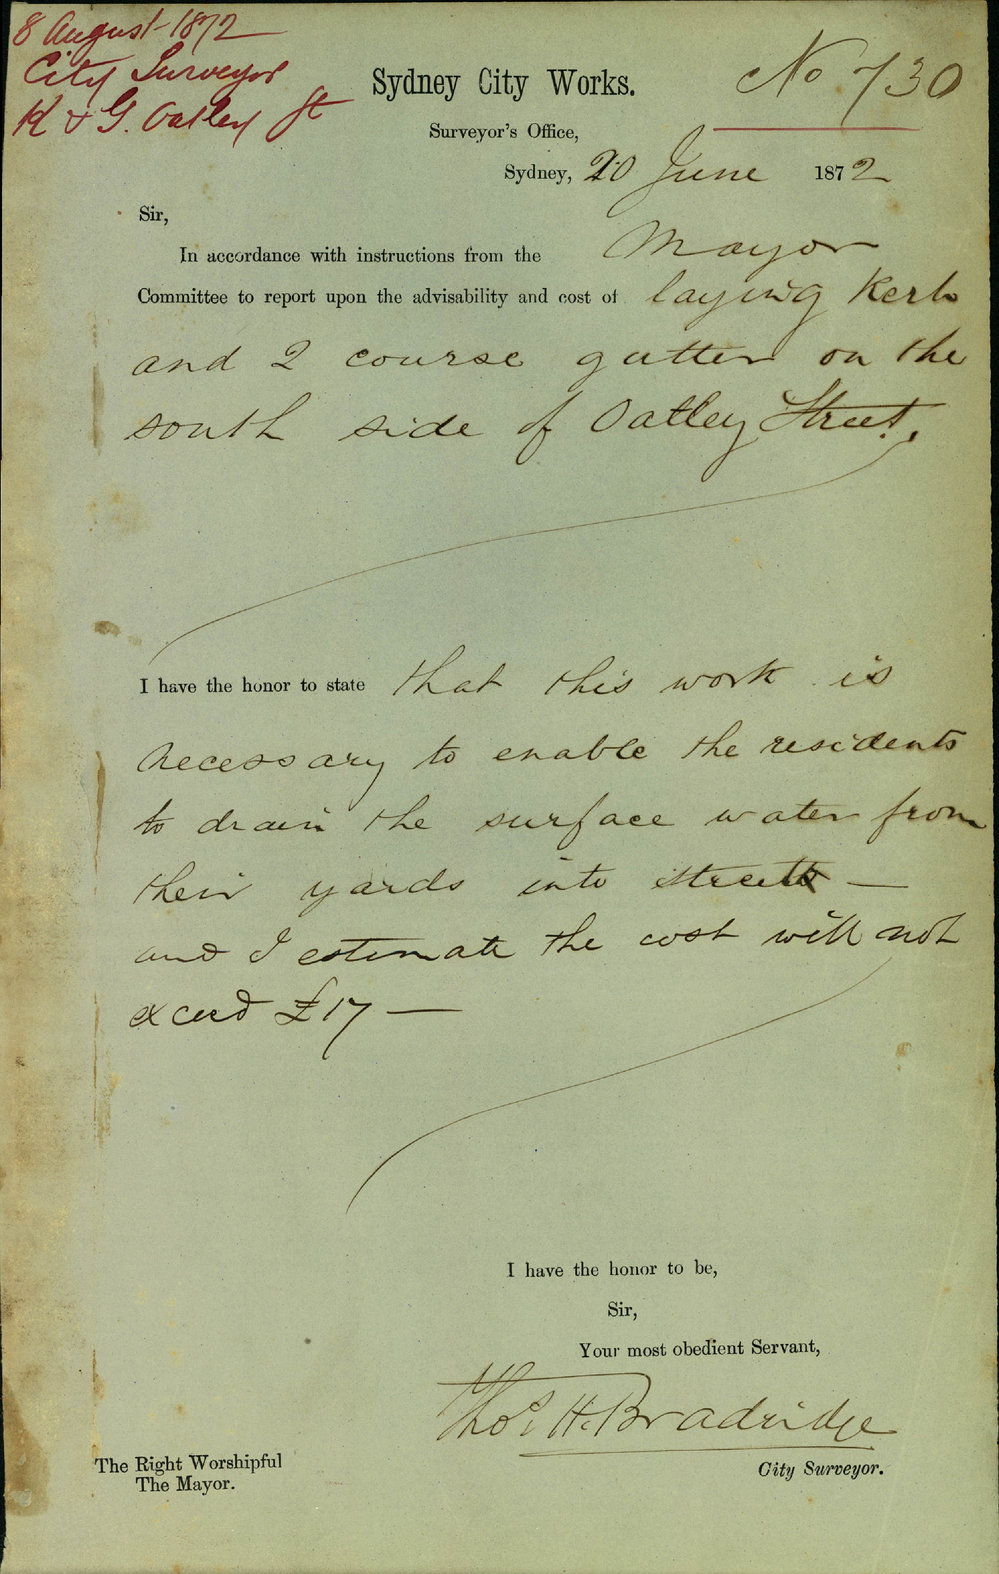 8 August 1872
City Surveyor
K & G. Oatley St
Sydney City Works.
No 730
Surveyor's Office,
Sydney, 20 June 1872
Sir,
In accordance with instructions from the Mayor
Committee to report upon the advisability and cost of laying Kerb
and 2 course gutter on the
south side of Oatley Street.
I have the honor to state that this work is
necessary to enable the residents
to drain the surface water from
their yards into street —
and I estimate the cost will not
exceed £17 —
I have the honor to be,
Sir,
Your most obedient Servant,
Thos. H. Bradridge
City Surveyor.
The Right Worshipful
The Mayor.